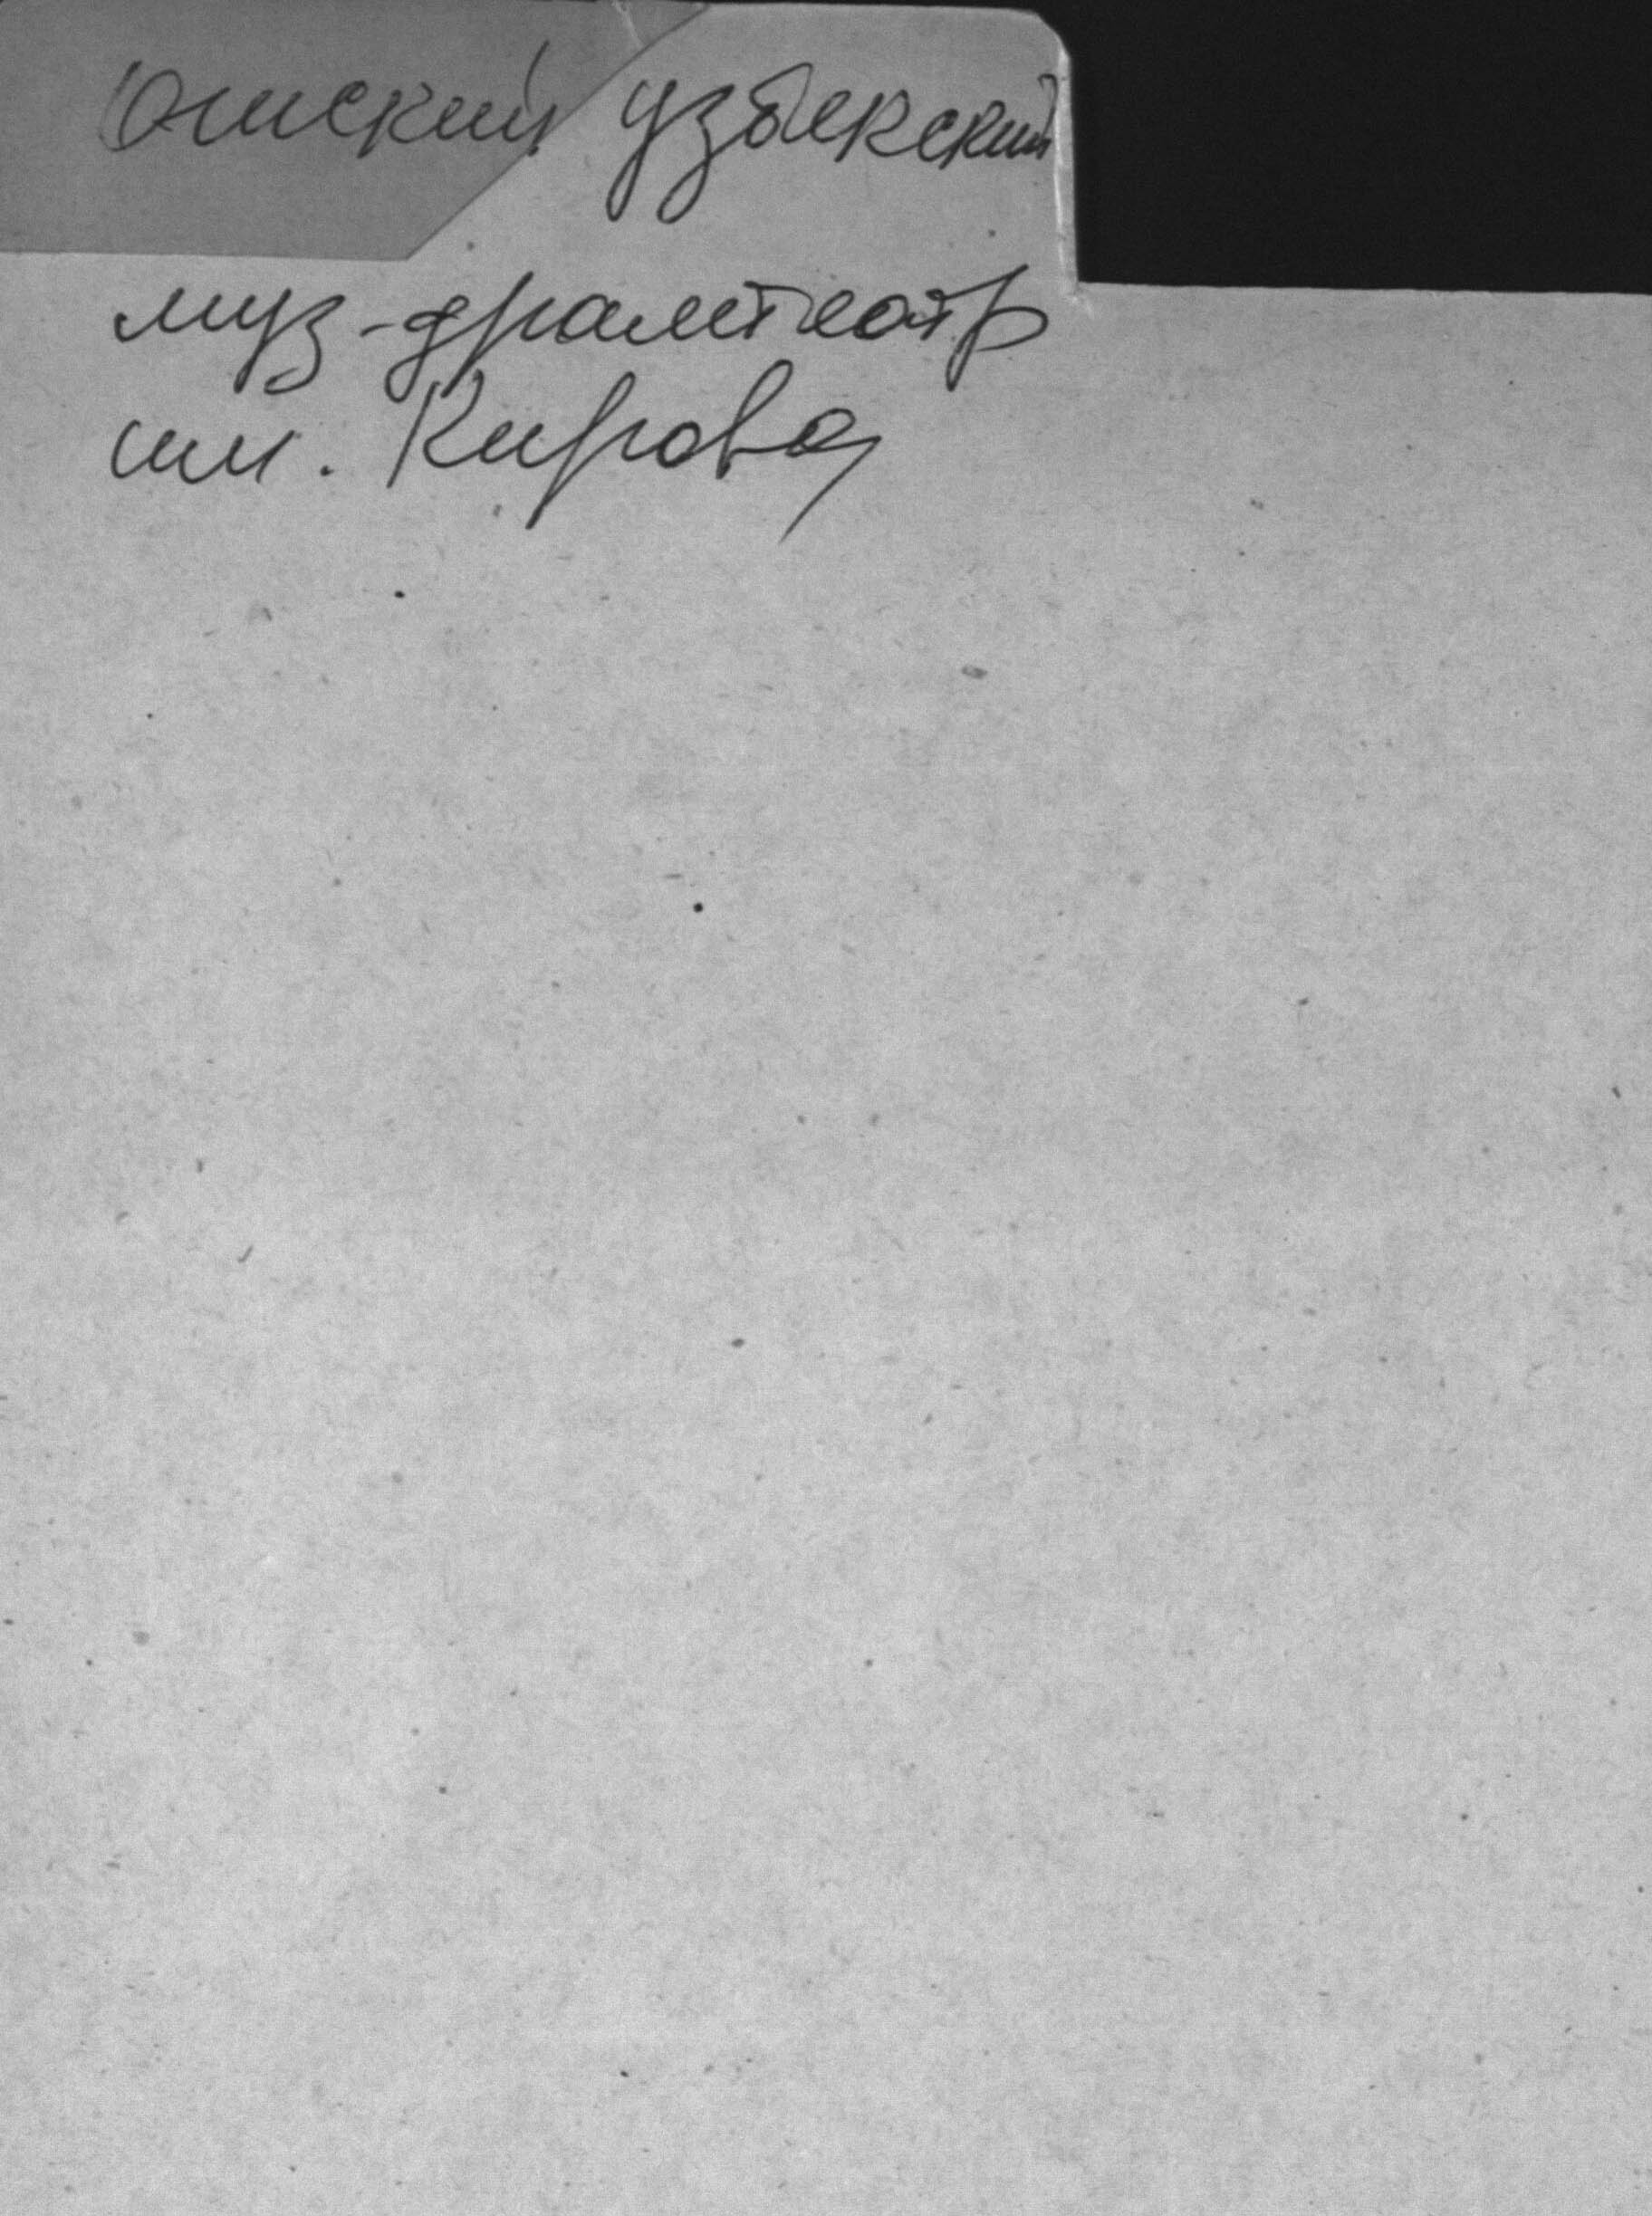 Ошский узбекский
муз-драмтеатр
им. Кирова